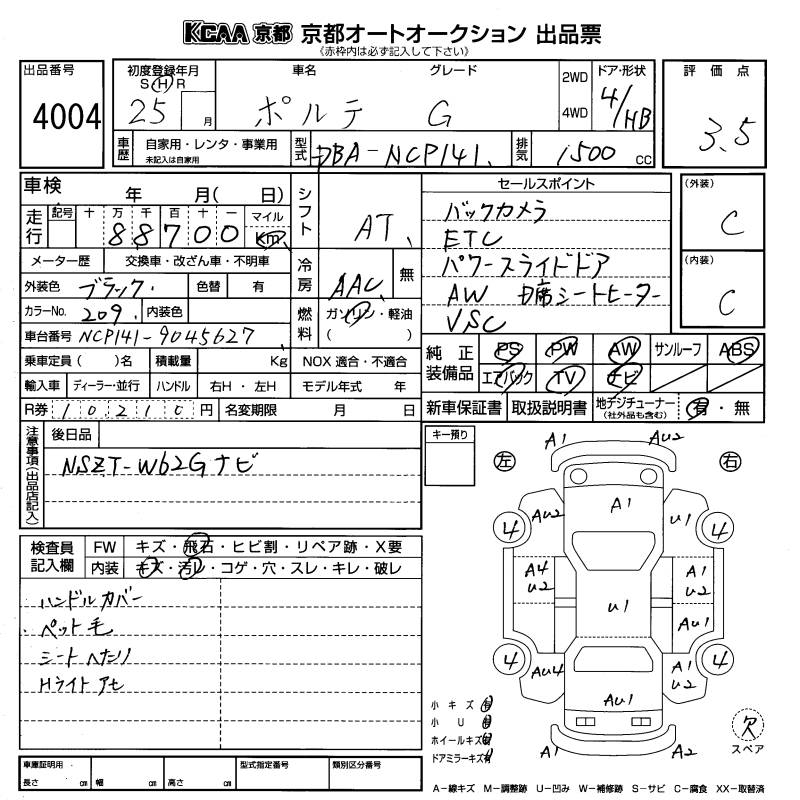 KCAA 京都 京都オートオークション 出品票
《赤枠内は必ず記入して下さい》
出品番号 4004
初度登録年月 S H R 25 月
車名 ポルテ
グレード G
2WD 4WD
ドア・形状 4/HB
評価点 3.5
車歴 自家用・レンタ・事業用 未記入は自家用
型式 DBA-NCP141
排気 1500 cc
車検 年 月( 日)
走行 記号 十 万 千 百 十 一 マイル km
88700
シフト AT
メーター歴 交換車・改ざん車・不明車
外装色 ブラック 色替 有
カラーNo. 209 内装色
冷房 AAC 無
燃料 ガソリン・軽油 ( )
車台番号 NCP141-9045627
乗車定員( )名 積載量 Kg NOX 適合・不適合
輸入車 ディーラー・並行 ハンドル 右H・左H モデル年式 年
R券 10210 円 名変期限 月 日
セールスポイント
バックカメラ
ETC
パワースライドドア
AW D席シートヒーター
VSC
(外装) C
(内装) C
純正装備品 PS PW AW サンルーフ ABS
エアバック TV ナビ
新車保証書 取扱説明書 地デジチューナー (社外品も含む) 有・無
注意事項(出品店記入) 後日品
NSZT-W62Gナビ
キー預り
検査員記入欄 FW キズ・飛石・ヒビ割・リペア跡・X要
内装 キズ・汚レ・コゲ・穴・スレ・キレ・破レ
ハンドルカバー
ペット毛
シートへたり
Hライトアセ
A1 AU2
左 右
4 AU2 A1 U1 4
A4 U2 U1 A1 U2
AU1
4 AU4 AU1 A1 U2 4
A1 A2
小キズ 有
小U 有
ホイールキズ 有
ドアミラーキズ 有
欠 スペア
車庫証明用 長さ cm 幅 cm 高さ cm 型式指定番号 類別区分番号
A-線キズ M-調整跡 U-凹み W-補修跡 S-サビ C-腐食 XX-取替済